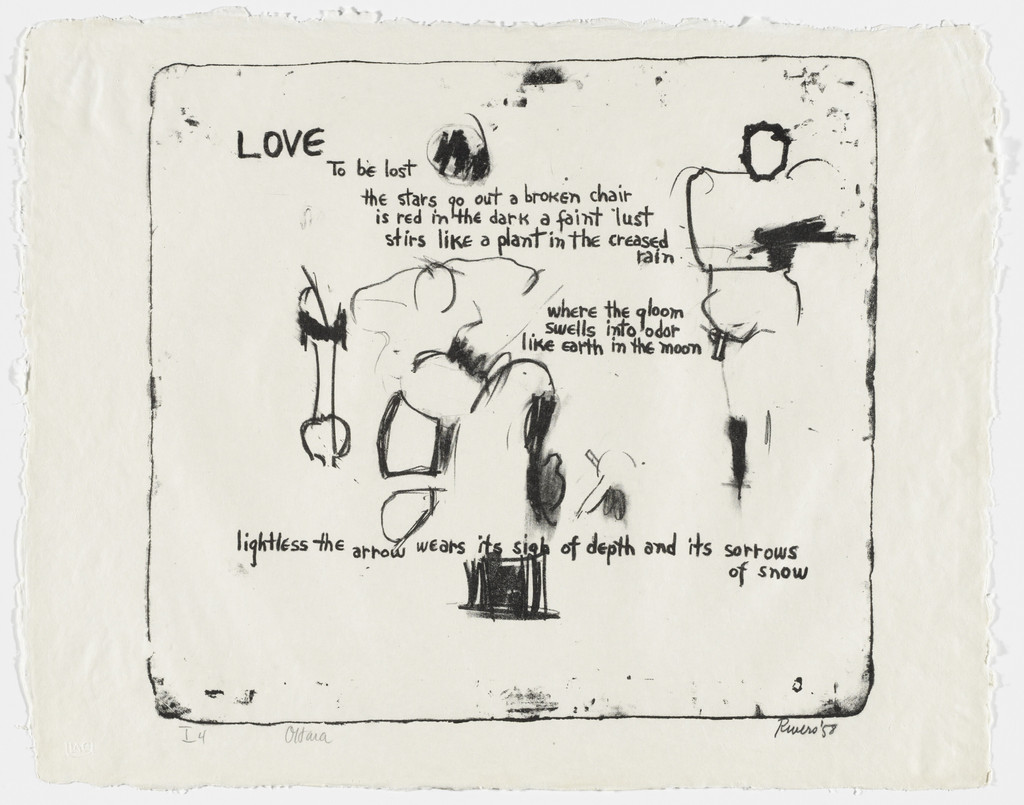 LOVE
To be lost
the stars go out a broken chair
is red in the dark a faint lust
stirs like a plant in the creased
rain
where the gloom
swells into odor
like earth in the moon
lightless the arrow wears its sigh of depth and its sorrows
of snow
I 4 O'Hara Rivers '58